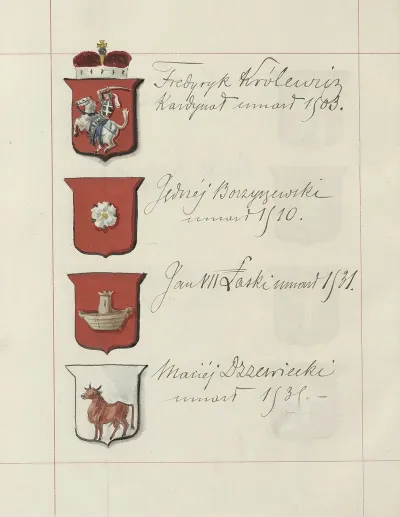 Fryderyk Królewicz
Kardynał umarł 1503.
Jędrzéj Borzyszewski
umarł 1510.
Jan VII Łaski umarł 1531.
Maciéj Drzewiecki
umarł 1535. –